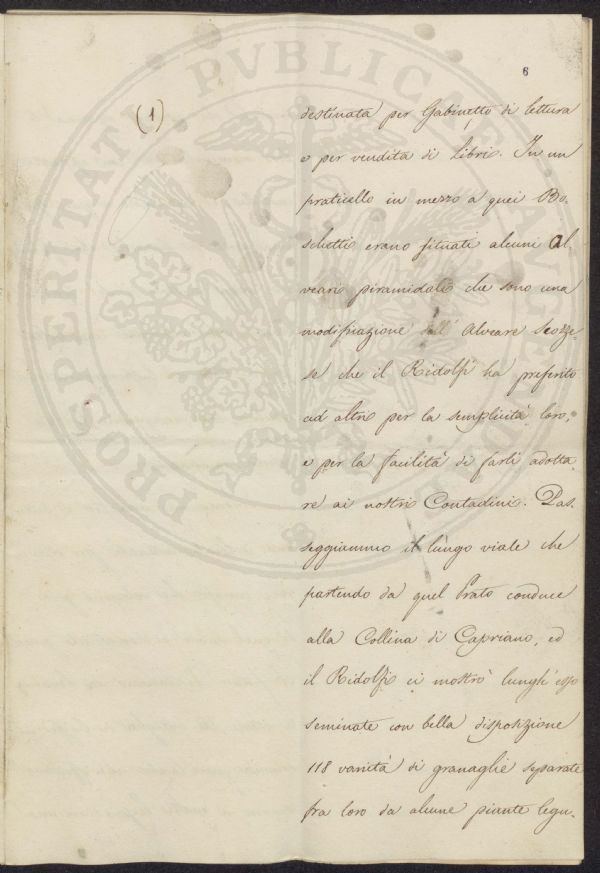 6
(1)
destinata per Gabinetto di lettura
o per vendita di Libri. In un
praticello in mezzo a quei Bo-
schetti erano situati alcuni Al-
veari piramidali che sono una
modifiazione dell' Alveare Scozze-
se che il Ridolfi ha preferito
ad altri per la semplicità loro,
e per la facilità di farli adotta
re ai nostri Contadini. Pas-
seggiammo il lungo viale che
partendo da quel Prato conduce
alla Collina di Capriano, ed
il Ridolfi ci mostrò lungh' esso
seminate con bella disposizione
118 varità di granaglie separate
fra loro da alcune piante legu-
PROSPERITATI PVBLICAE AVGENDAE